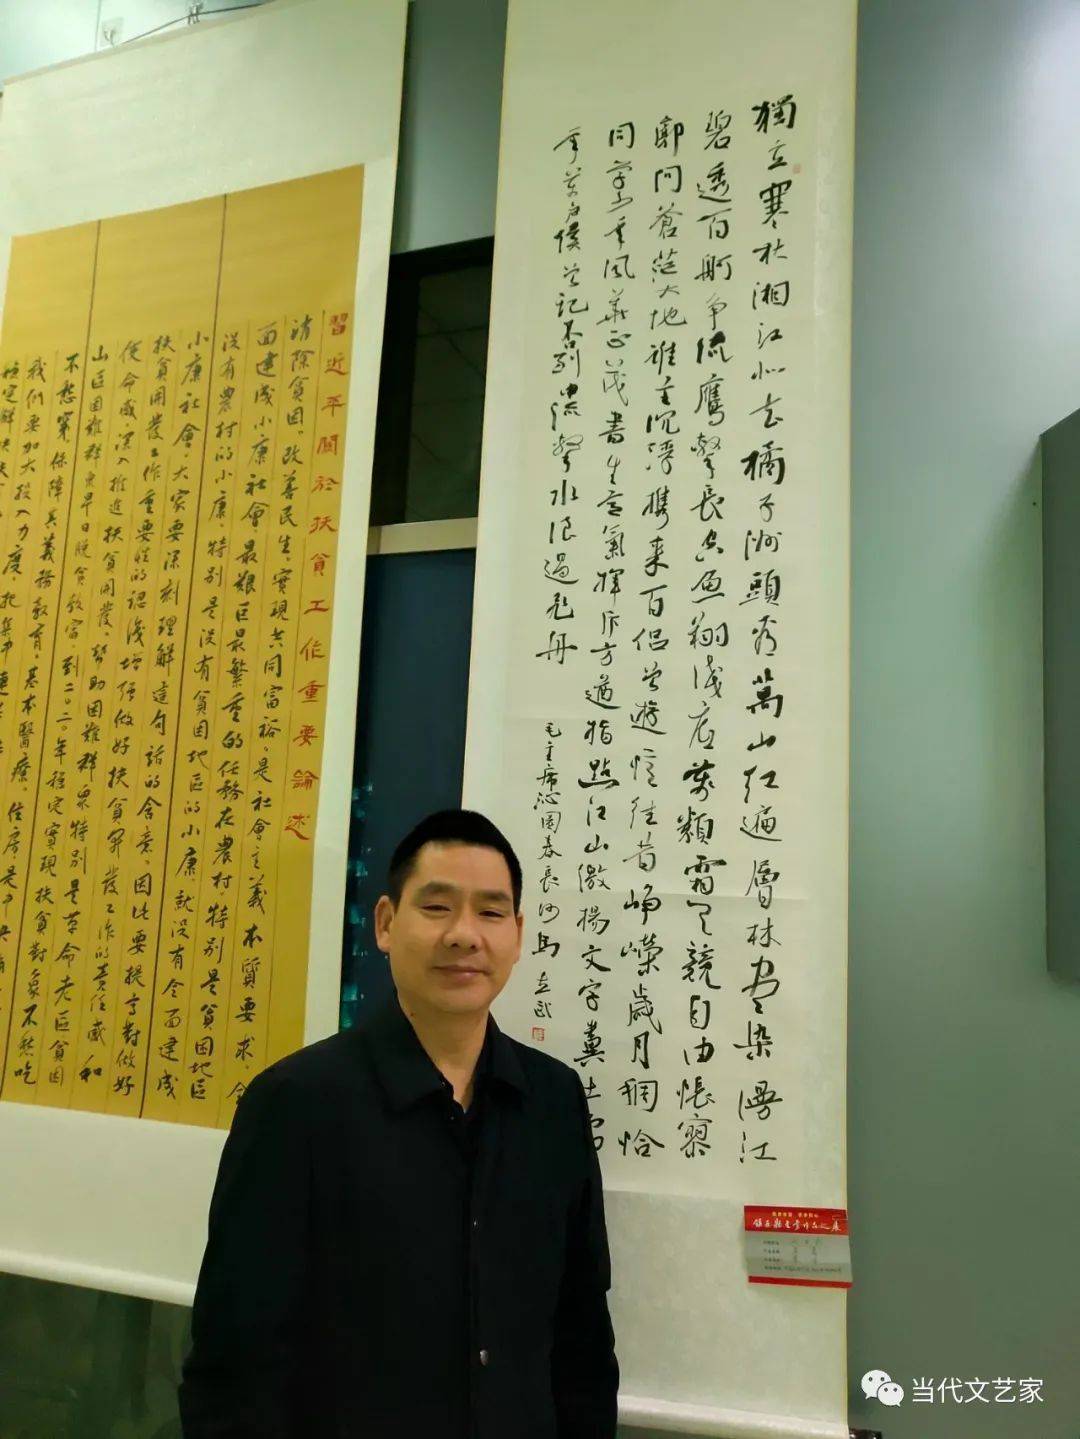 獨立寒秋湘江北去橘子洲頭看萬山红遍層林盡染漫江
碧透百舸争流鷹擊長空魚翔淺底萬類霜天競自由悵寥
郭问蒼茫大地誰主沉浮攜来百侣曾遊憶往昔崢嶸歲月稠恰
同学少年風華正茂書生意氣揮斥方遒指點江山激揚文字糞土當
年萬户侯曾記否到中流擊水浪遏飛舟
毛主席沁園春長沙馬立武
習近平關於扶貧工作重要論述
消除貧困、改善民生、實現共同富裕,是社會主義本質要求。全
面建成小康社會,最艱巨最繁重的任務在農村,特别是貧困地區
没有農村的小康,特别是没有貧困地區的小康,就没有全面建成
小康社會。大家要深刻理解這句話的含意。因此要提高對做好
扶貧開發工作重要性的認識,增强做好扶貧開發工作的責任感和
使命感,深入推進扶貧開發,幫助困難群衆特别是革命老區貧困
山區困難群衆早日脱貧致富。到二〇二〇年穩定實現扶貧對象不愁吃
不愁穿,保障其義務教育、基本醫療、住房,是中央
我們要加大投入力度,把集中連
当代文艺家